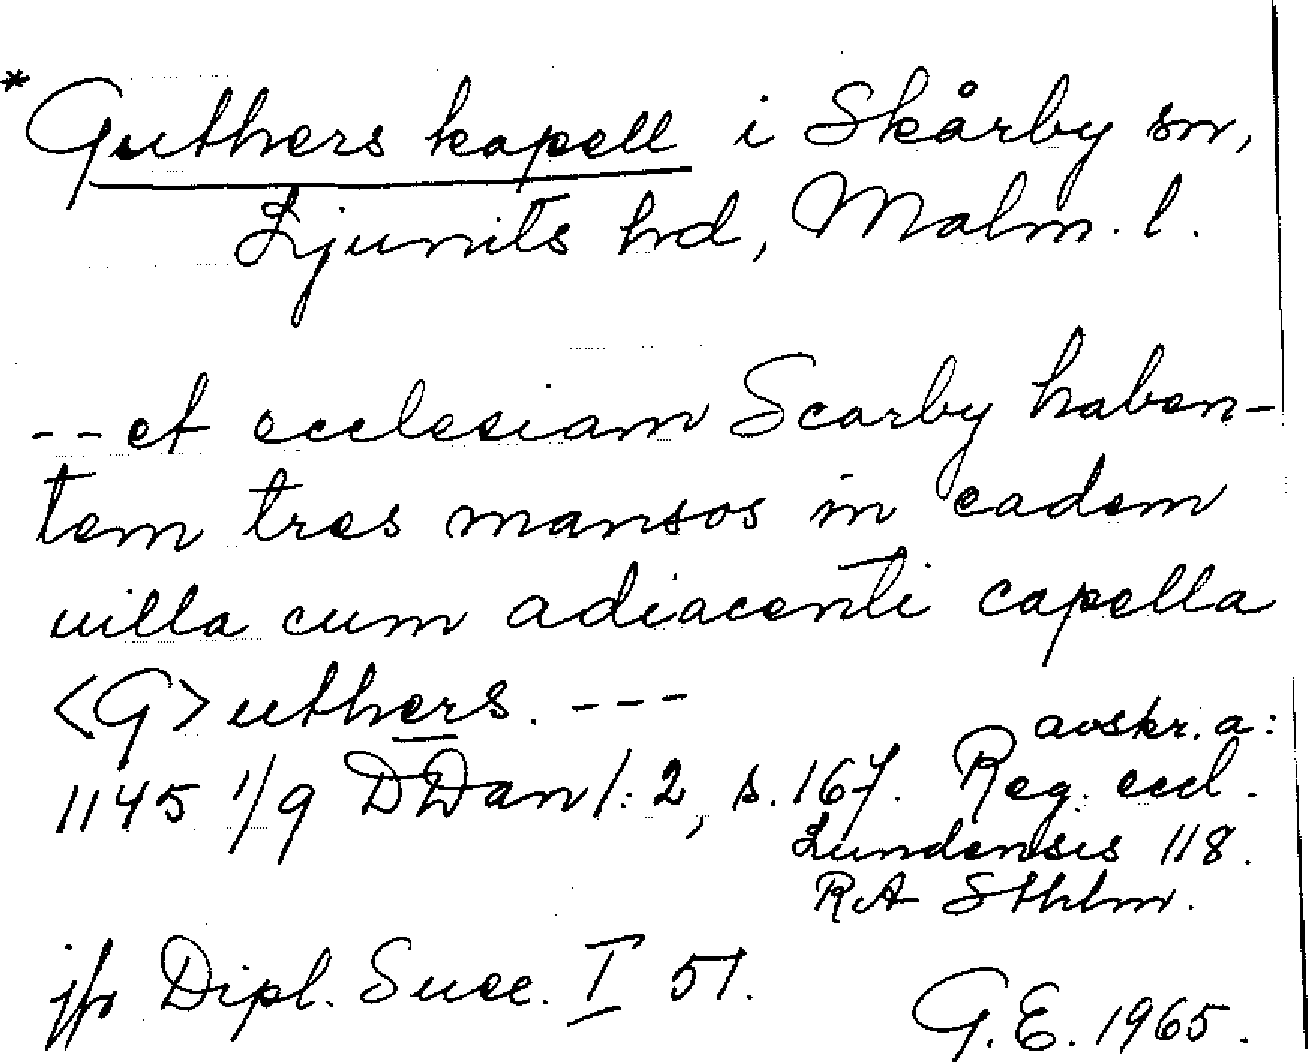 * Guthers kapell i Skårby sn,
Ljunits hd, Malm. l.
-- et ecclesiam Scarby haben-
tem tres mansos in eadem
uilla cum adiacenti capella
<G>uthers. ---
avskr. a:
1145 1/9 DDan 1:2, s. 167. Reg. eccl.
Lundensis 118.
RA Sthlm.
jfr Dipl. Suec. I 51.
G.E. 1965.